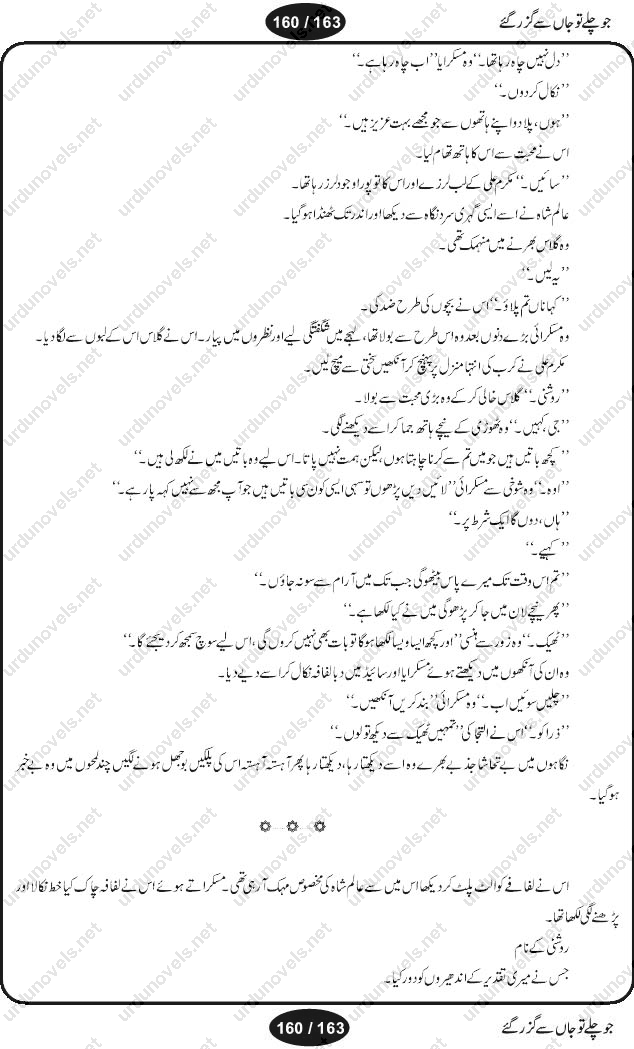 جو چلے تو جاں سے گزر گئے
160 / 163
’’دل نہیں چاہ رہا تھا۔‘‘ وہ مسکرایا ’’اب چاہ رہا ہے۔‘‘
’’نکال کر دوں۔‘‘
’’ہوں، پلا دو اپنے ہاتھوں سے جو مجھے بہت عزیز ہیں۔‘‘
اس نے محبت سے اس کا ہاتھ تھام لیا۔
’’سائیں۔‘‘ مکرم علی کے لب لرزے اور اس کا تو پورا وجود لرز رہا تھا۔
عالم شاہ نے اسے ایسی گہری سرد نگاہ سے دیکھا اور اندر تک ٹھنڈا ہو گیا۔
وہ گلاس بھرنے میں منہمک تھی۔
’’یہ لیں۔‘‘
’’کہا ناں تم پلاؤ۔‘‘ اس نے بچوں کی طرح ضد کی۔
وہ مسکرائی بڑے دنوں بعد وہ اس طرح سے بولا تھا، لہجے میں شگفتگی لیے اور نظروں میں پیار۔ اس نے گلاس اس کے لبوں سے لگا دیا۔
مکرم علی نے کرب کی انتہا منزل پر پہنچ کر آنکھیں سختی سے میچ لیں۔
’’روشنی۔‘‘ گلاس خالی کر کے وہ بڑی محبت سے بولا۔
’’جی، کہیں۔‘‘ وہ ٹھوڑی کے نیچے ہاتھ جما کر اسے دیکھنے لگی۔
’’کچھ باتیں ہیں جو میں تم سے کرنا چاہتا ہوں، لیکن ہمت نہیں پاتا۔ اس لیے وہ باتیں میں نے لکھ لی ہیں۔‘‘
’’اوہ۔‘‘ وہ شوخی سے مسکرائی ’’لائیں دیں پڑھوں تو سہی ایسی کون سی باتیں ہیں جو آپ مجھ سے نہیں کہہ پا رہے۔‘‘
’’ہاں، دوں گا ایک شرط پر۔‘‘
’’کہیے۔‘‘
’’تم اس وقت تک میرے پاس بیٹھو گی جب تک میں آرام سے سو نہ جاؤں۔‘‘
’’پھر نیچے لان میں جا کر پڑھو گی میں نے کیا لکھا ہے۔‘‘
’’ٹھیک۔‘‘ وہ زور سے ہنسی ’’اور کچھ ایسا ویسا لکھا ہو گا تو بات بھی نہیں کروں گی، اس لیے سوچ سمجھ کر دیجئے گا۔‘‘
وہ ان کی آنکھوں میں دیکھتے ہوئے مسکرایا اور سائیڈ میں دبا لفافہ نکال کر اسے دے دیا۔
’’چلیں سوئیں اب۔‘‘ وہ مسکرائی ’’بند کریں آنکھیں۔‘‘
’’ذرا رکو۔‘‘ اس نے التجا کی ’’تمہیں ٹھیک سے دیکھ تو لوں۔‘‘
نگاہوں میں بے تحاشا جذبے بھرے وہ اسے دیکھتا رہا، دیکھتا رہا پھر آہستہ آہستہ اس کی پلکیں بوجھل ہونے لگیں چند لمحوں میں وہ بے خبر
ہو گیا۔
اس نے لفافے کو الٹ پلٹ کر دیکھا اس میں سے عالم شاہ کی مخصوص مہک آ رہی تھی۔ مسکراتے ہوئے اس نے لفافہ چاک کیا خط نکالا اور
پڑھنے لگی لکھا تھا۔
روشنی کے نام
جس نے میری تقدیر کے اندھیروں کو دور کیا۔
جو چلے تو جاں سے گزر گئے
160 / 163
urdunovels.net